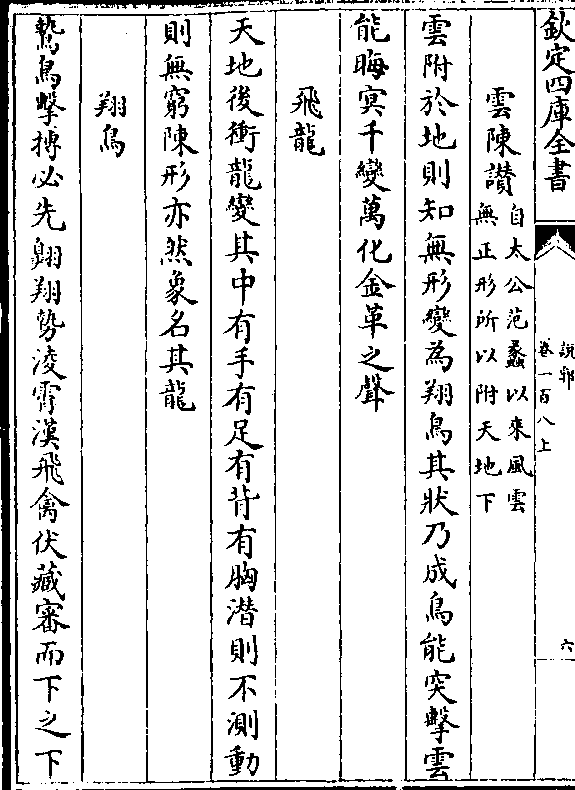 欽定四庫全書
說郛
卷一百八上
六
雲陳讃
自太公范蠡以來風雲
無正形所以附天地下
雲附於地則知無形變為翔鳥其狀乃成鳥能突擊雲
能晦冥千變萬化金革之聲
飛龍
天地後衝龍變其中有手有足有背有胸潜則不測動
則無窮陳形亦然象名其龍
翔鳥
鷙鳥擊搏必先翺翔勢淩霄漢飛禽伏藏審而下之下